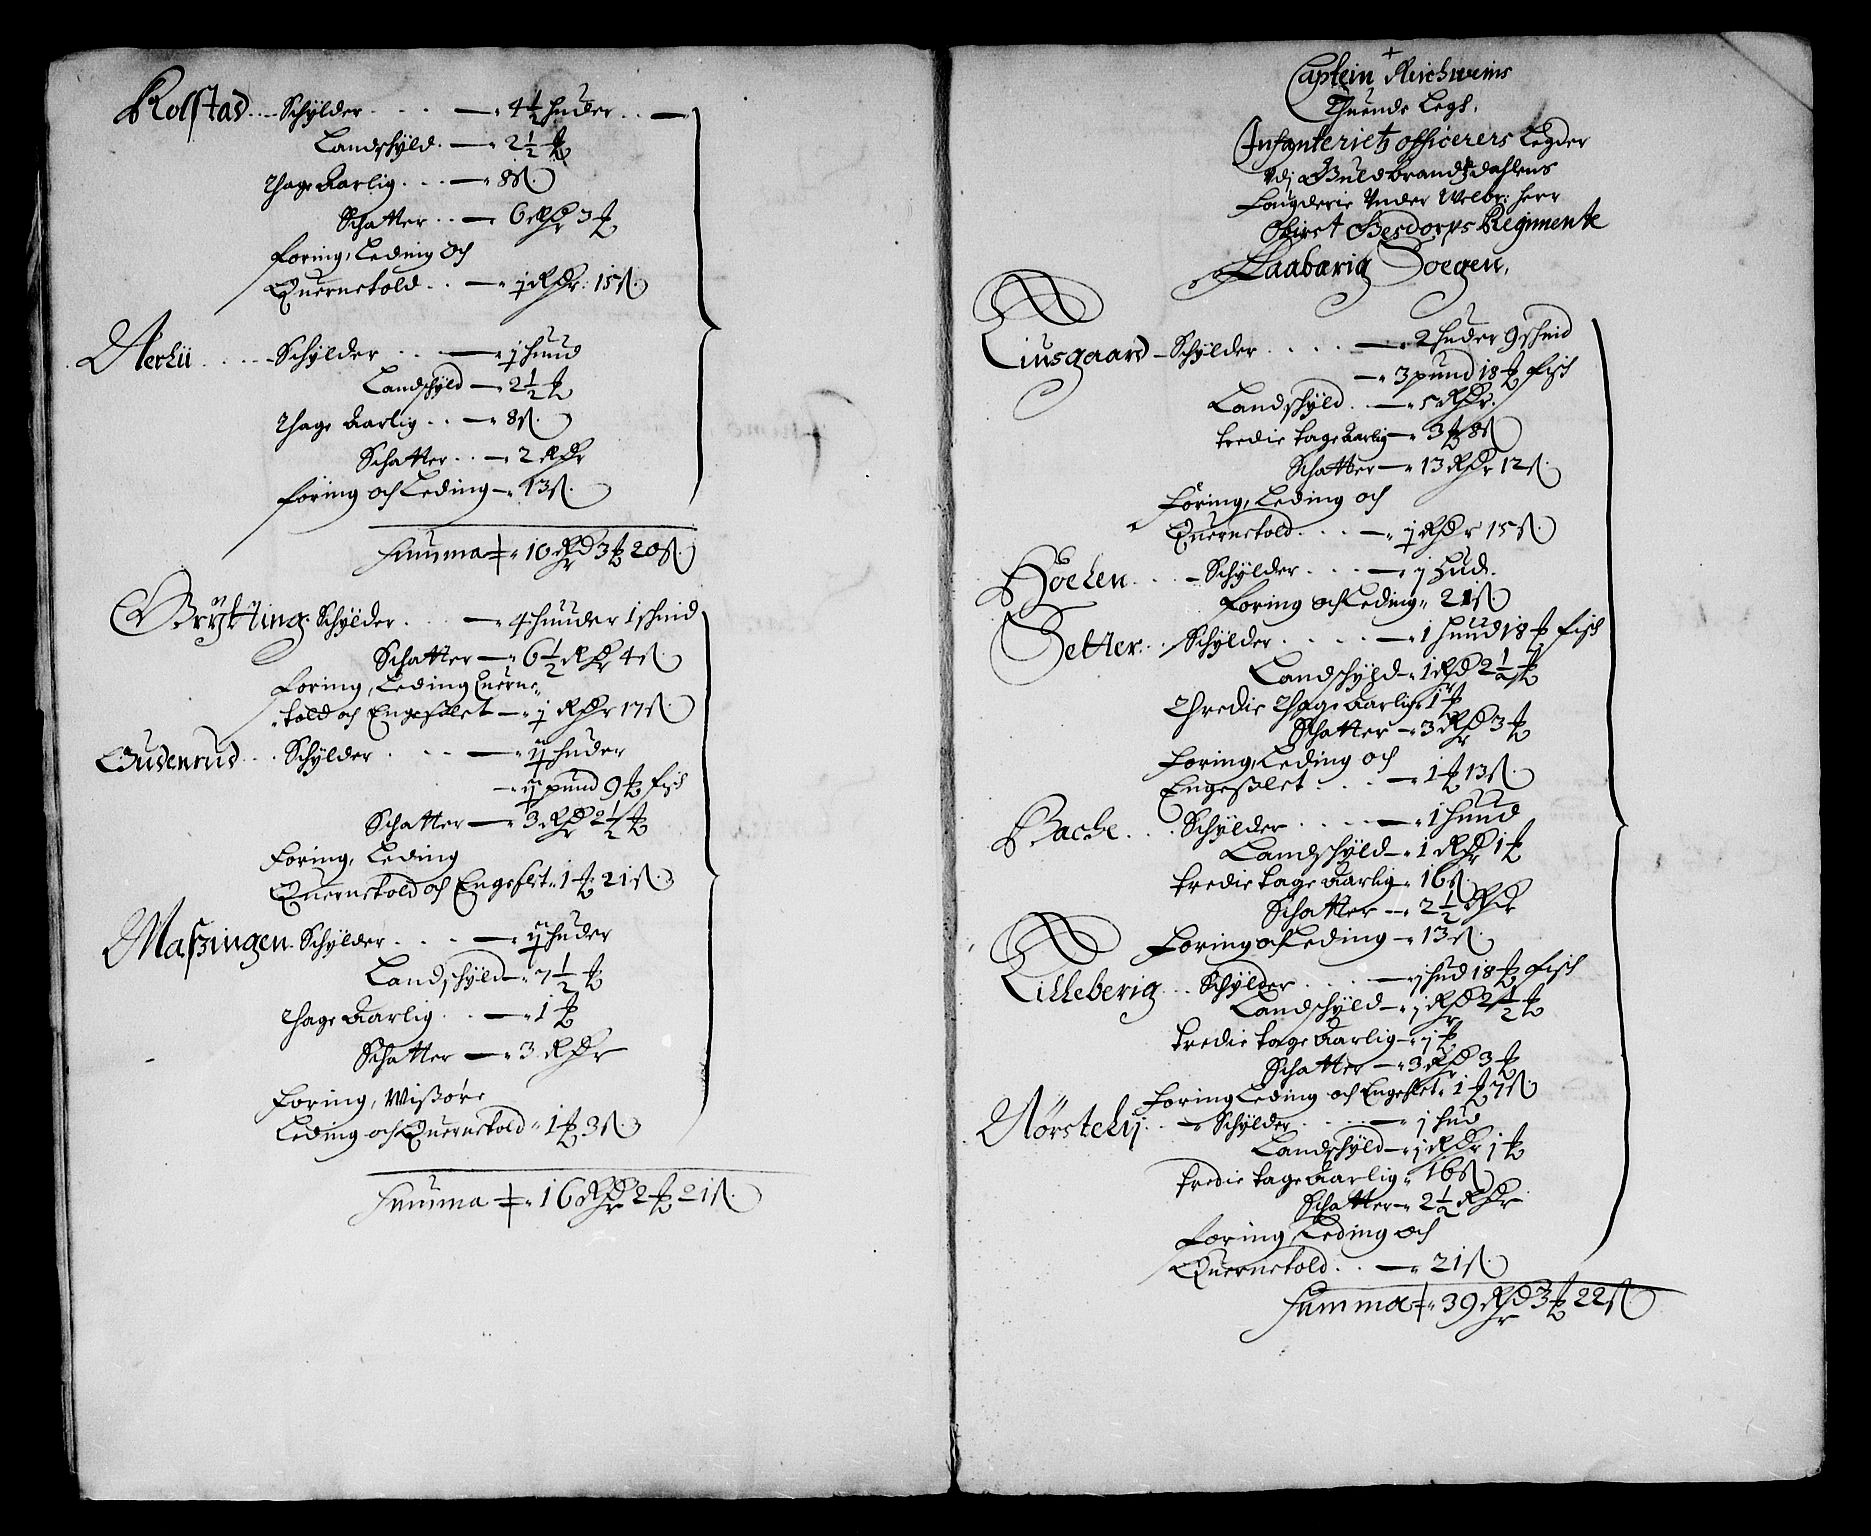 Rolstad. Schÿlder — 4½ huder
Landschÿld. — 2½ ℔
Thage Aarlig. — 8 ß.
Schatter — 6 Rdr 3 ℔
Foring, Leding och
Quernetold — j Rdr: 15 ß.
Nerlii Schÿlder — j huud
Landschÿld — 2½ ℔
Thage Aarlig — 8 ß.
Schatter — 2 Rdr
Foring och Leding — 13 ß.
Summa — 10 Rdr 3 ℔ 20 ß.
Brÿtting Schÿlder — 4 huuder 1 schind
Schatter — 6½ Rdr 4 ß
Foring, Leding Querne-
told och Engeßlet — j Rdr 17 ß
Gudenrud Schÿlder — ij huder
— ij pund 9 ℔ fisch
Schatter — 3 Rdr 2½ ℔
Foring, Leding
Quernetold och Engeslet 1 ℔ 21 ß
Maßingen Schÿlder — ij huder
Landschÿld — 7½ ℔
Thage Aarlig — 1 ℔
Schatter — 3 Rdr
Foring, Wißøre
Leding och Quernetold 1 ℔ 3 ß
Summa — 16 Rdr 2 ℔ 21 ß.
Captein Reichweins
Thuende Legd.
Infanteriets officerers Legder
Vdj Guldbrandsdahlens
Fougderie Vnder Welbr: herr
Obirst Gesdorps Regimente
Laabærig Soegen.
Liusgaard Schÿlder — 2 huder 9 schind
— 3 pund 18 ℔ fisch
Landschÿld — 5 Rdr.
tredie tage Aarlig — 3 ℔ 8 ß
Schatter — 13 Rdr 12 ß.
Föring, Leding och
Quernetold — j Rdr 15 ß
Höelen Schÿlder — j Hud.
Foring och Leding 21 ß
Setter Schÿlder — 1 huud 18 ℔ fisch
Landschÿld — 1 Rdr 2½ ℔
Thredie Thage Aarlig 1 ℔
Schatter — 3 Rdr 3 ℔
Foring, Leding och
Engeßlet — 1 ℔ 13 ß.
Bache Schÿlder — 1 huud
Landschÿld — 1 Rdr 1 ℔
tredie tage Aarlig 16 ß.
Schatter — 2½ Rdr
Foring och Leding — 13 ß.
Lilleberig Schÿlder — j hud 18 ℔ fisch
Landschÿld — j Rdr 2½ ℔
tredie tage Aarlig — j ℔
Schatter — 3 Rdr 3 ℔
Foring Leding och Engeslet 1 ℔ 7 ß.
Nörstelij Schÿlder — j hud
Landschÿld — j Rdr j ℔
tredie tage Aarlig 16 ß
Schatter — 2½ Rdr
Foring, Leding och
Quernetold — 21 ß.
Summa — 39 Rdr 3 ℔ 22 ß